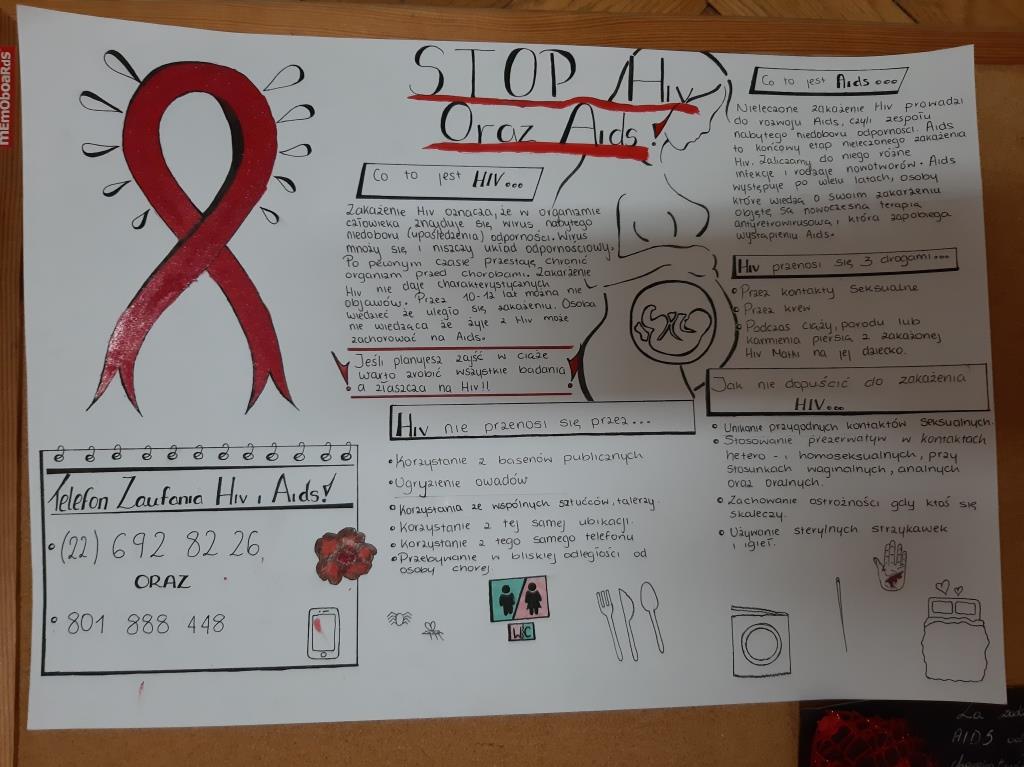 mEmOboaRdS
STOP Hiv
Oraz Aids!
Co to jest HIV...
Zakażenie Hiv oznacza, że w organizmie
człowieka znajduje się wirus nabytego
niedoboru (upośledzenia) odporności. Wirus
mnoży się i niszczy układ odpornościowy.
Po pewnym czasie przestaje chronić
organizm przed chorobami. Zakarzenie
Hiv nie daje charakterystycznych
objawów. Przez 10-12 lat można nie
wiedzieć że uległo się zakażeniu. Osoba
nie wiedząca że żyje z Hiv może
zachorować na Aids.
Jeśli planujesz zajść w ciąże
warto zrobić wszystkie badania
a złaszcza na Hiv!!
Co to jest Aids...
Nieleczone zakażenie Hiv prowadzi
do rozwoju Aids, czyli zespołu
nabytego niedoboru odporności. Aids
to końcowy etap nieleczonego zakażenia
Hiv. Zaliczamy do niego różne
infekcje i rodzaje nowotworów. Aids
występuje po wielu latach, osoby
które wiedzą o swoim zakarzeniu
objęte są nowoczesną terapią
antyretrowirusową, która zapobiega
wystąpieniu Aids.
Hiv przenosi się 3 drogami...
• Przez kontakty seksualne
• Przez krew
• Podczas ciąży, porodu lub
karmienia piersią z zakażonej
Hiv Matki na jej dziecko.
Hiv nie przenosi się przez...
• Korzystanie z basenów publicznych
• Ugryzienie owadów
• Korzystania ze wspólnych sztućców, talerzy.
• Korzystanie z tej samej ubikacji.
• Korzystanie z tego samego telefonu
• Przebywanie w bliskiej odległości od
osoby chorej.
W C
Jak nie dopuścić do zakażenia
HIV...
• Unikanie przygodnych kontaktów seksualnych.
• Stosowanie prezerwatyw w kontaktach
hetero - i homoseksualnych, przy
stosunkach waginalnych, analnych
oraz oralnych.
• Zachowanie ostrożności gdy ktoś się
skaleczy.
• Używanie sterylnych strzykawek
i igieł.
Telefon Zaufania Hiv i Aids!
• (22) 692 82 26,
ORAZ
• 801 888 448
AIDS